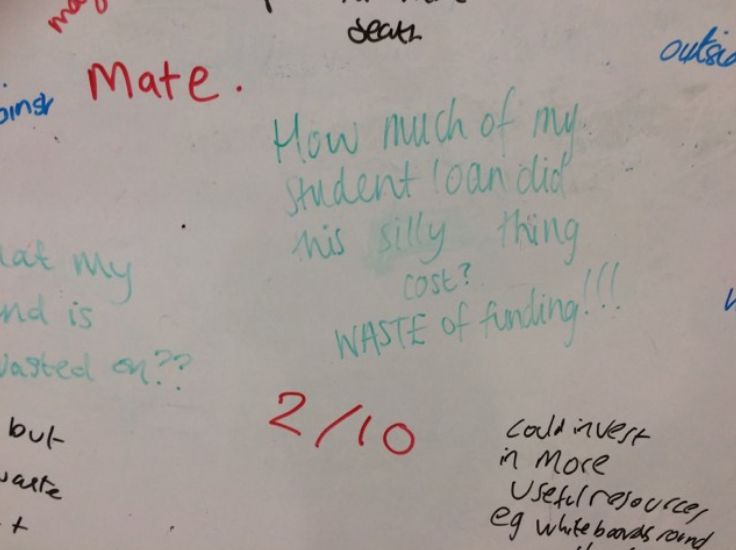 death
outsid
Mate.
How much of my
student loan did
this silly thing
cost?
WASTE of funding!!!
at my
nd is
wasted on??
2/10
but
waste
t
could invest
in more
useful resources,
eg whiteboards round